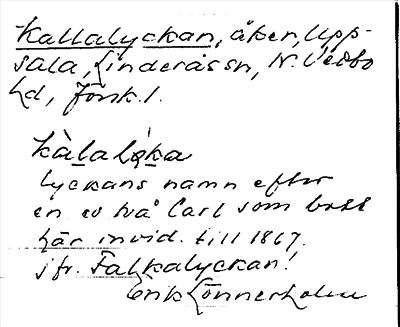 Kallalyckan, åker, Upp-
sala, Linderås sn, N. Vedbo
hd, Jönk. l.
kàlalỳka
lyckans namn efter
en av två Carl som bott
här invid. till 1867.
jfr. Falkalyckan!
Erik Lönnerholm